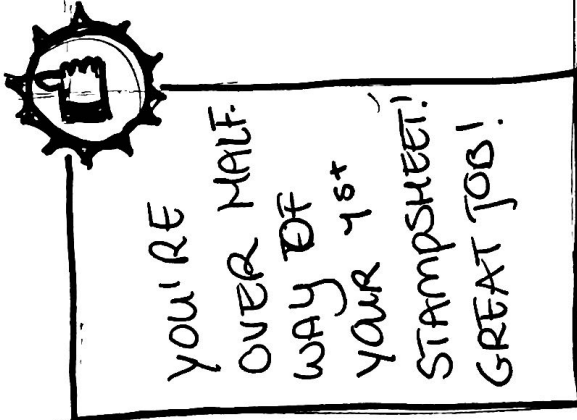 YOU'RE
OVER HALF
WAY OF
YOUR 1st
STAMPSHEET!
GREAT JOB!